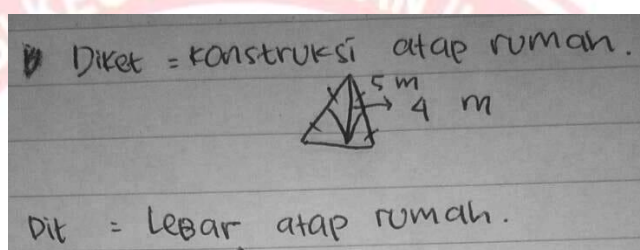 Diket = Konstruksi atap rumah.
5 m
4 m
Dit = LeBar atap rumah.